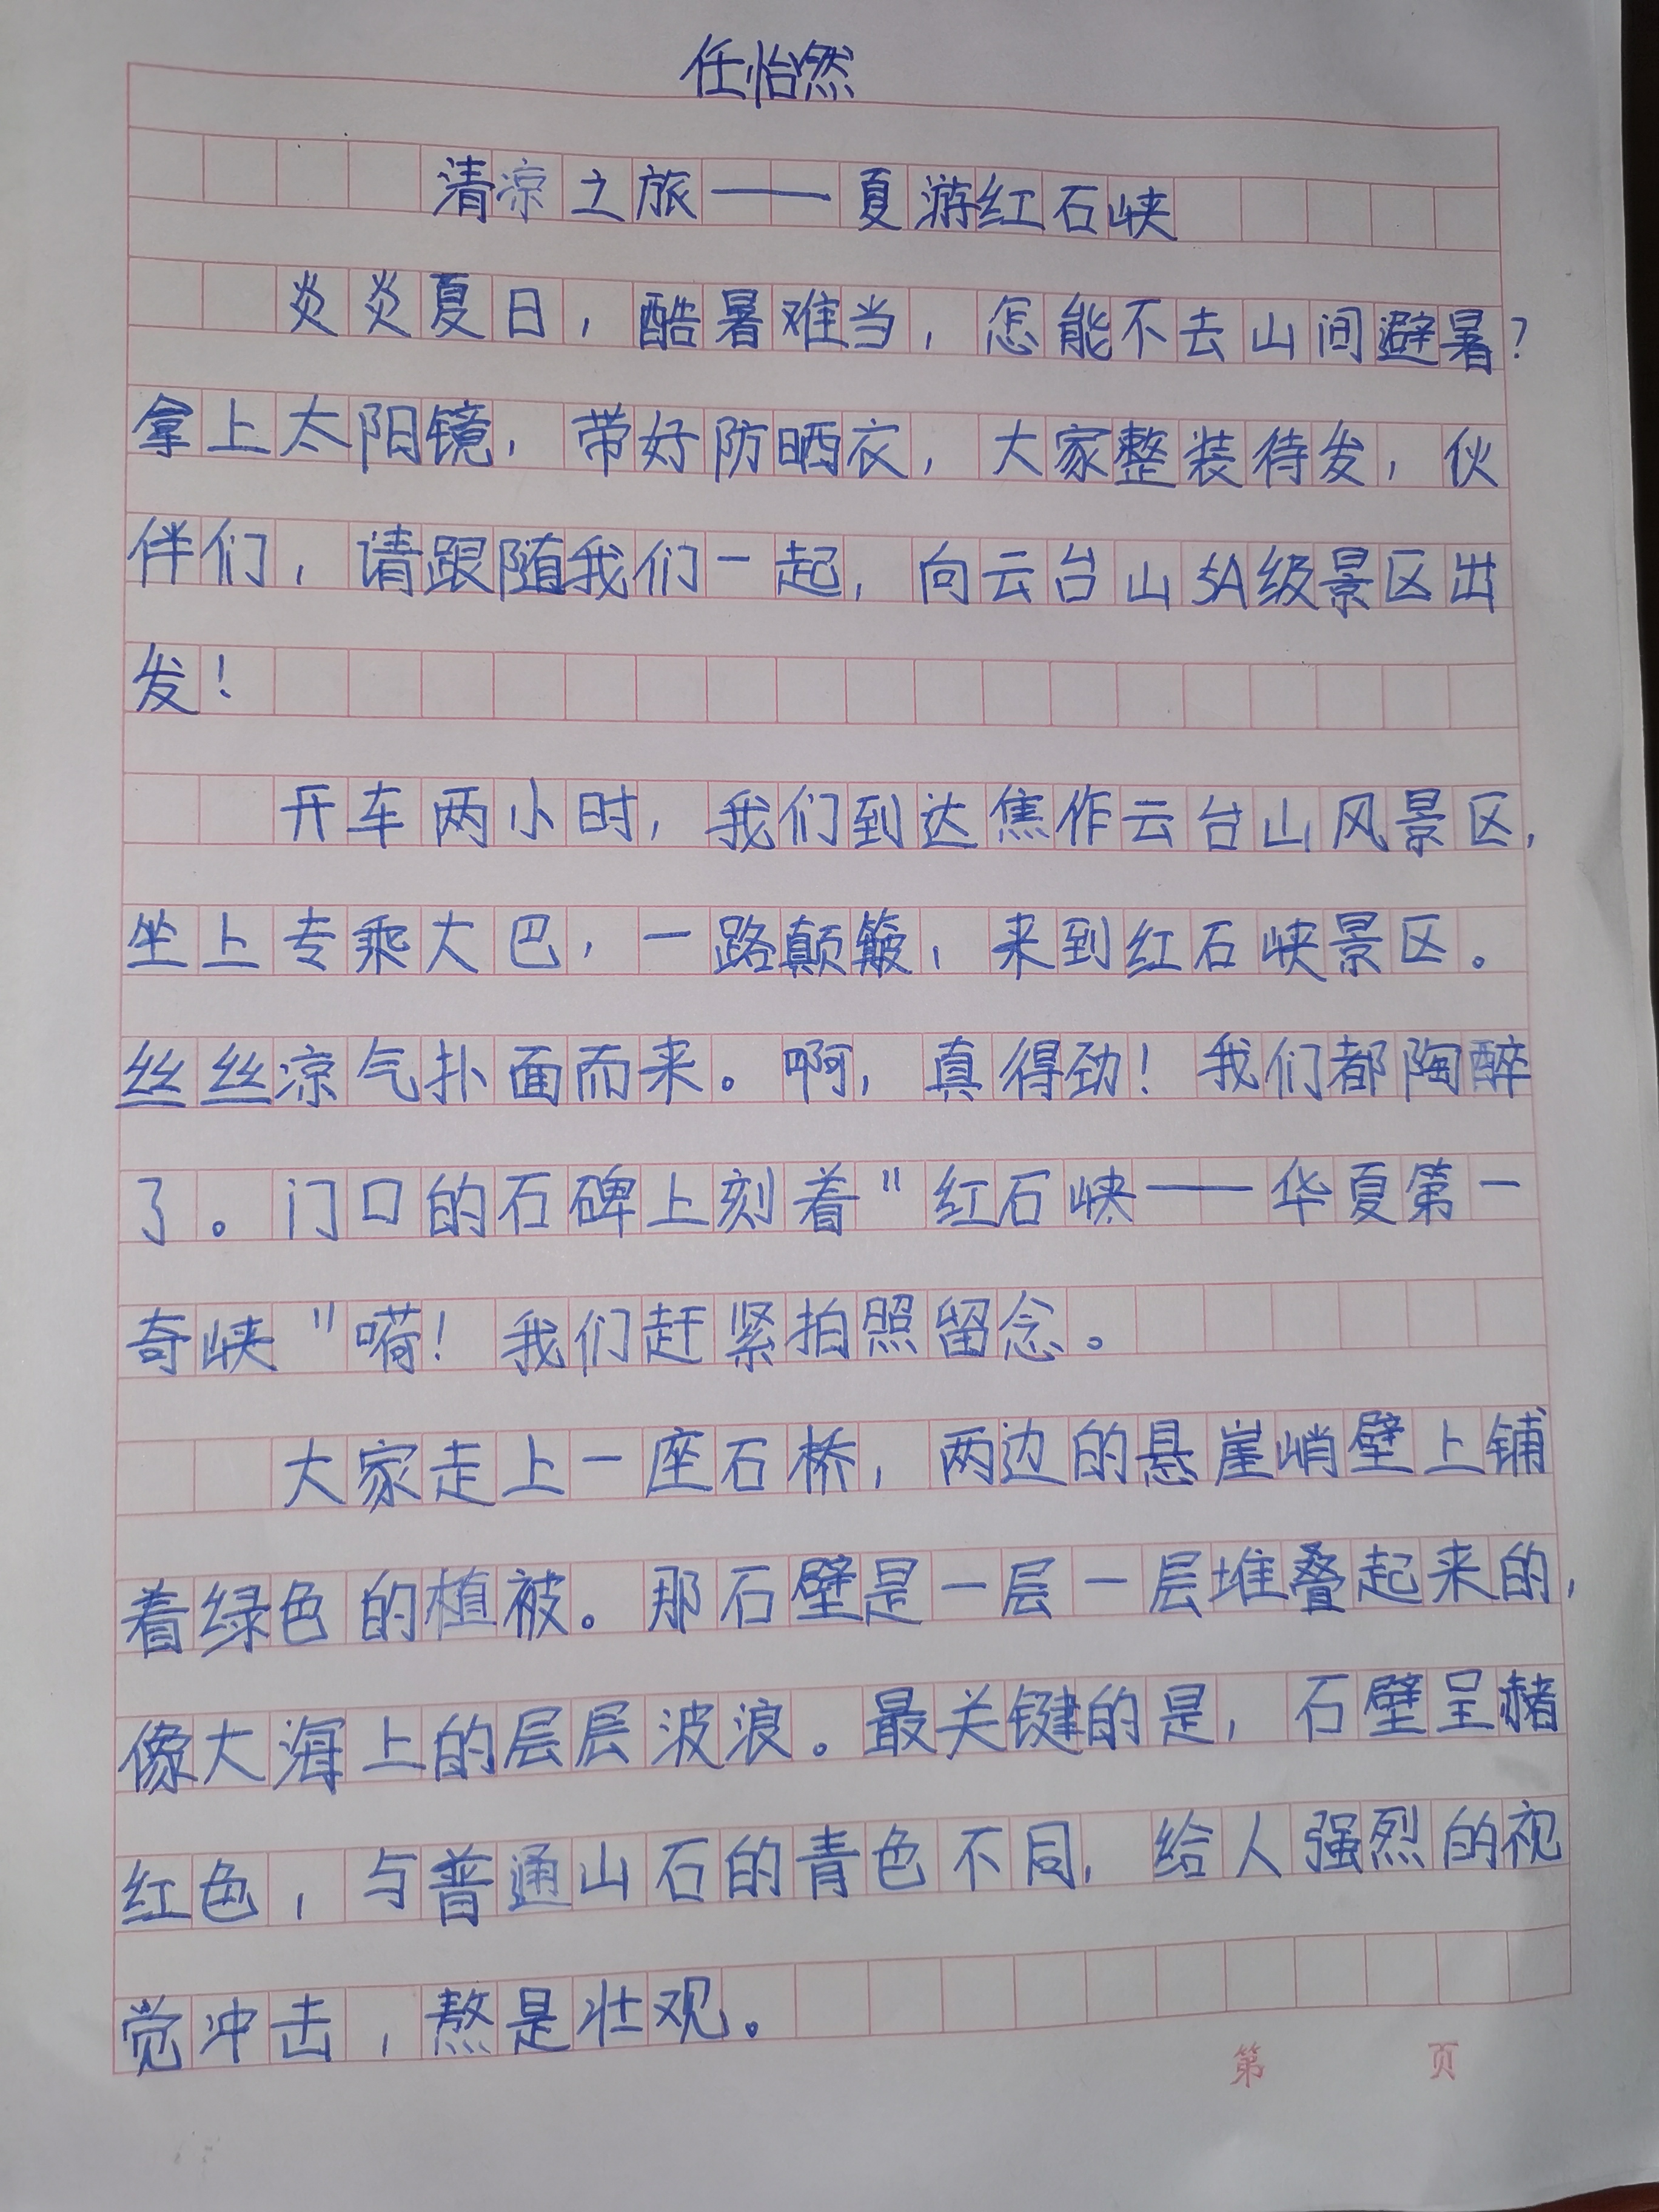 任怡然
清凉之旅——夏游红石峡
炎炎夏日，酷暑难当，怎能不去山间避暑？
拿上太阳镜，带好防晒衣，大家整装待发，伙
伴们，请跟随我们一起，向云台山5A级景区出
发！
开车两小时，我们到达焦作云台山风景区，
坐上专乘大巴，一路颠簸，来到红石峡景区。
丝丝凉气扑面而来。啊，真得劲！我们都陶醉
了。门口的石碑上刻着"红石峡——华夏第一
奇峡"嗬！我们赶紧拍照留念。
大家走上一座石桥，两边的悬崖峭壁上铺
着绿色的植被。那石壁是一层一层堆叠起来的，
像大海上的层层波浪。最关键的是，石壁呈赭
红色，与普通山石的青色不同，给人强烈的视
觉冲击，熬是壮观。
第 页